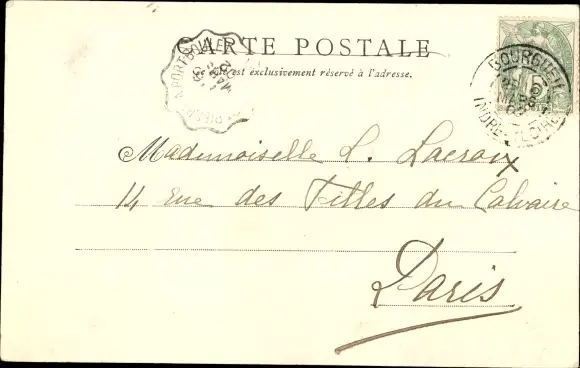 CARTE POSTALE
Ce côté est exclusivement réservé à l'adresse.
BOURGUEIL
INDRE-ET-LOIRE
Mademoiselle L. Lacroix
14 rue des Filles du Calvaire
Paris